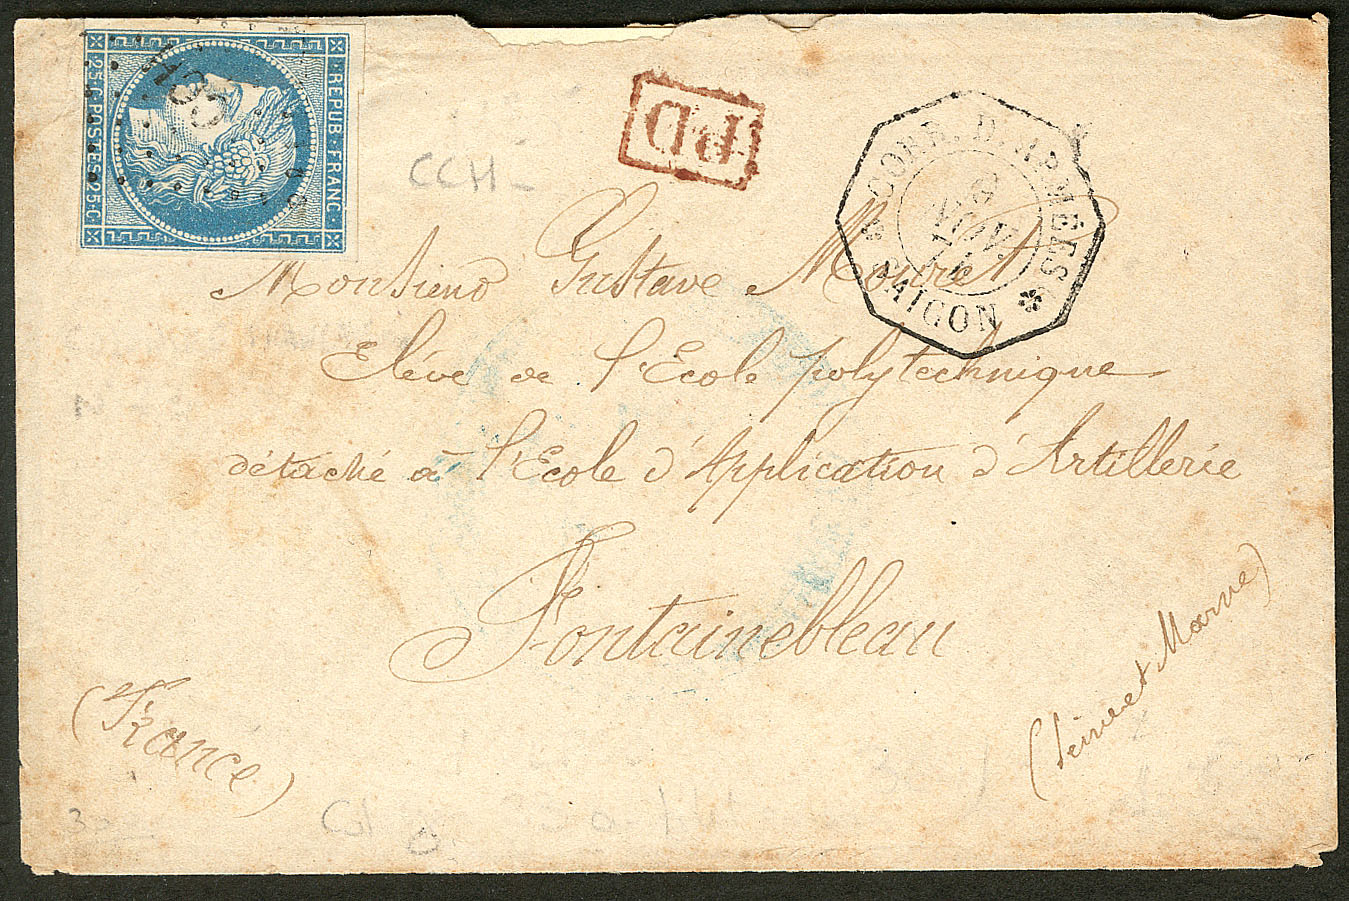 REPUB·FRANC
25·C·POSTES·25·C
PD
CORR. D. ARMÉES
SAIGON
CCH
Monsieur Gustave Mouret
Elève de l'Ecole polytechnique
détaché à l'Ecole d'Application d'Artillerie
Fontainebleau
(Seine et Marne)
(France)